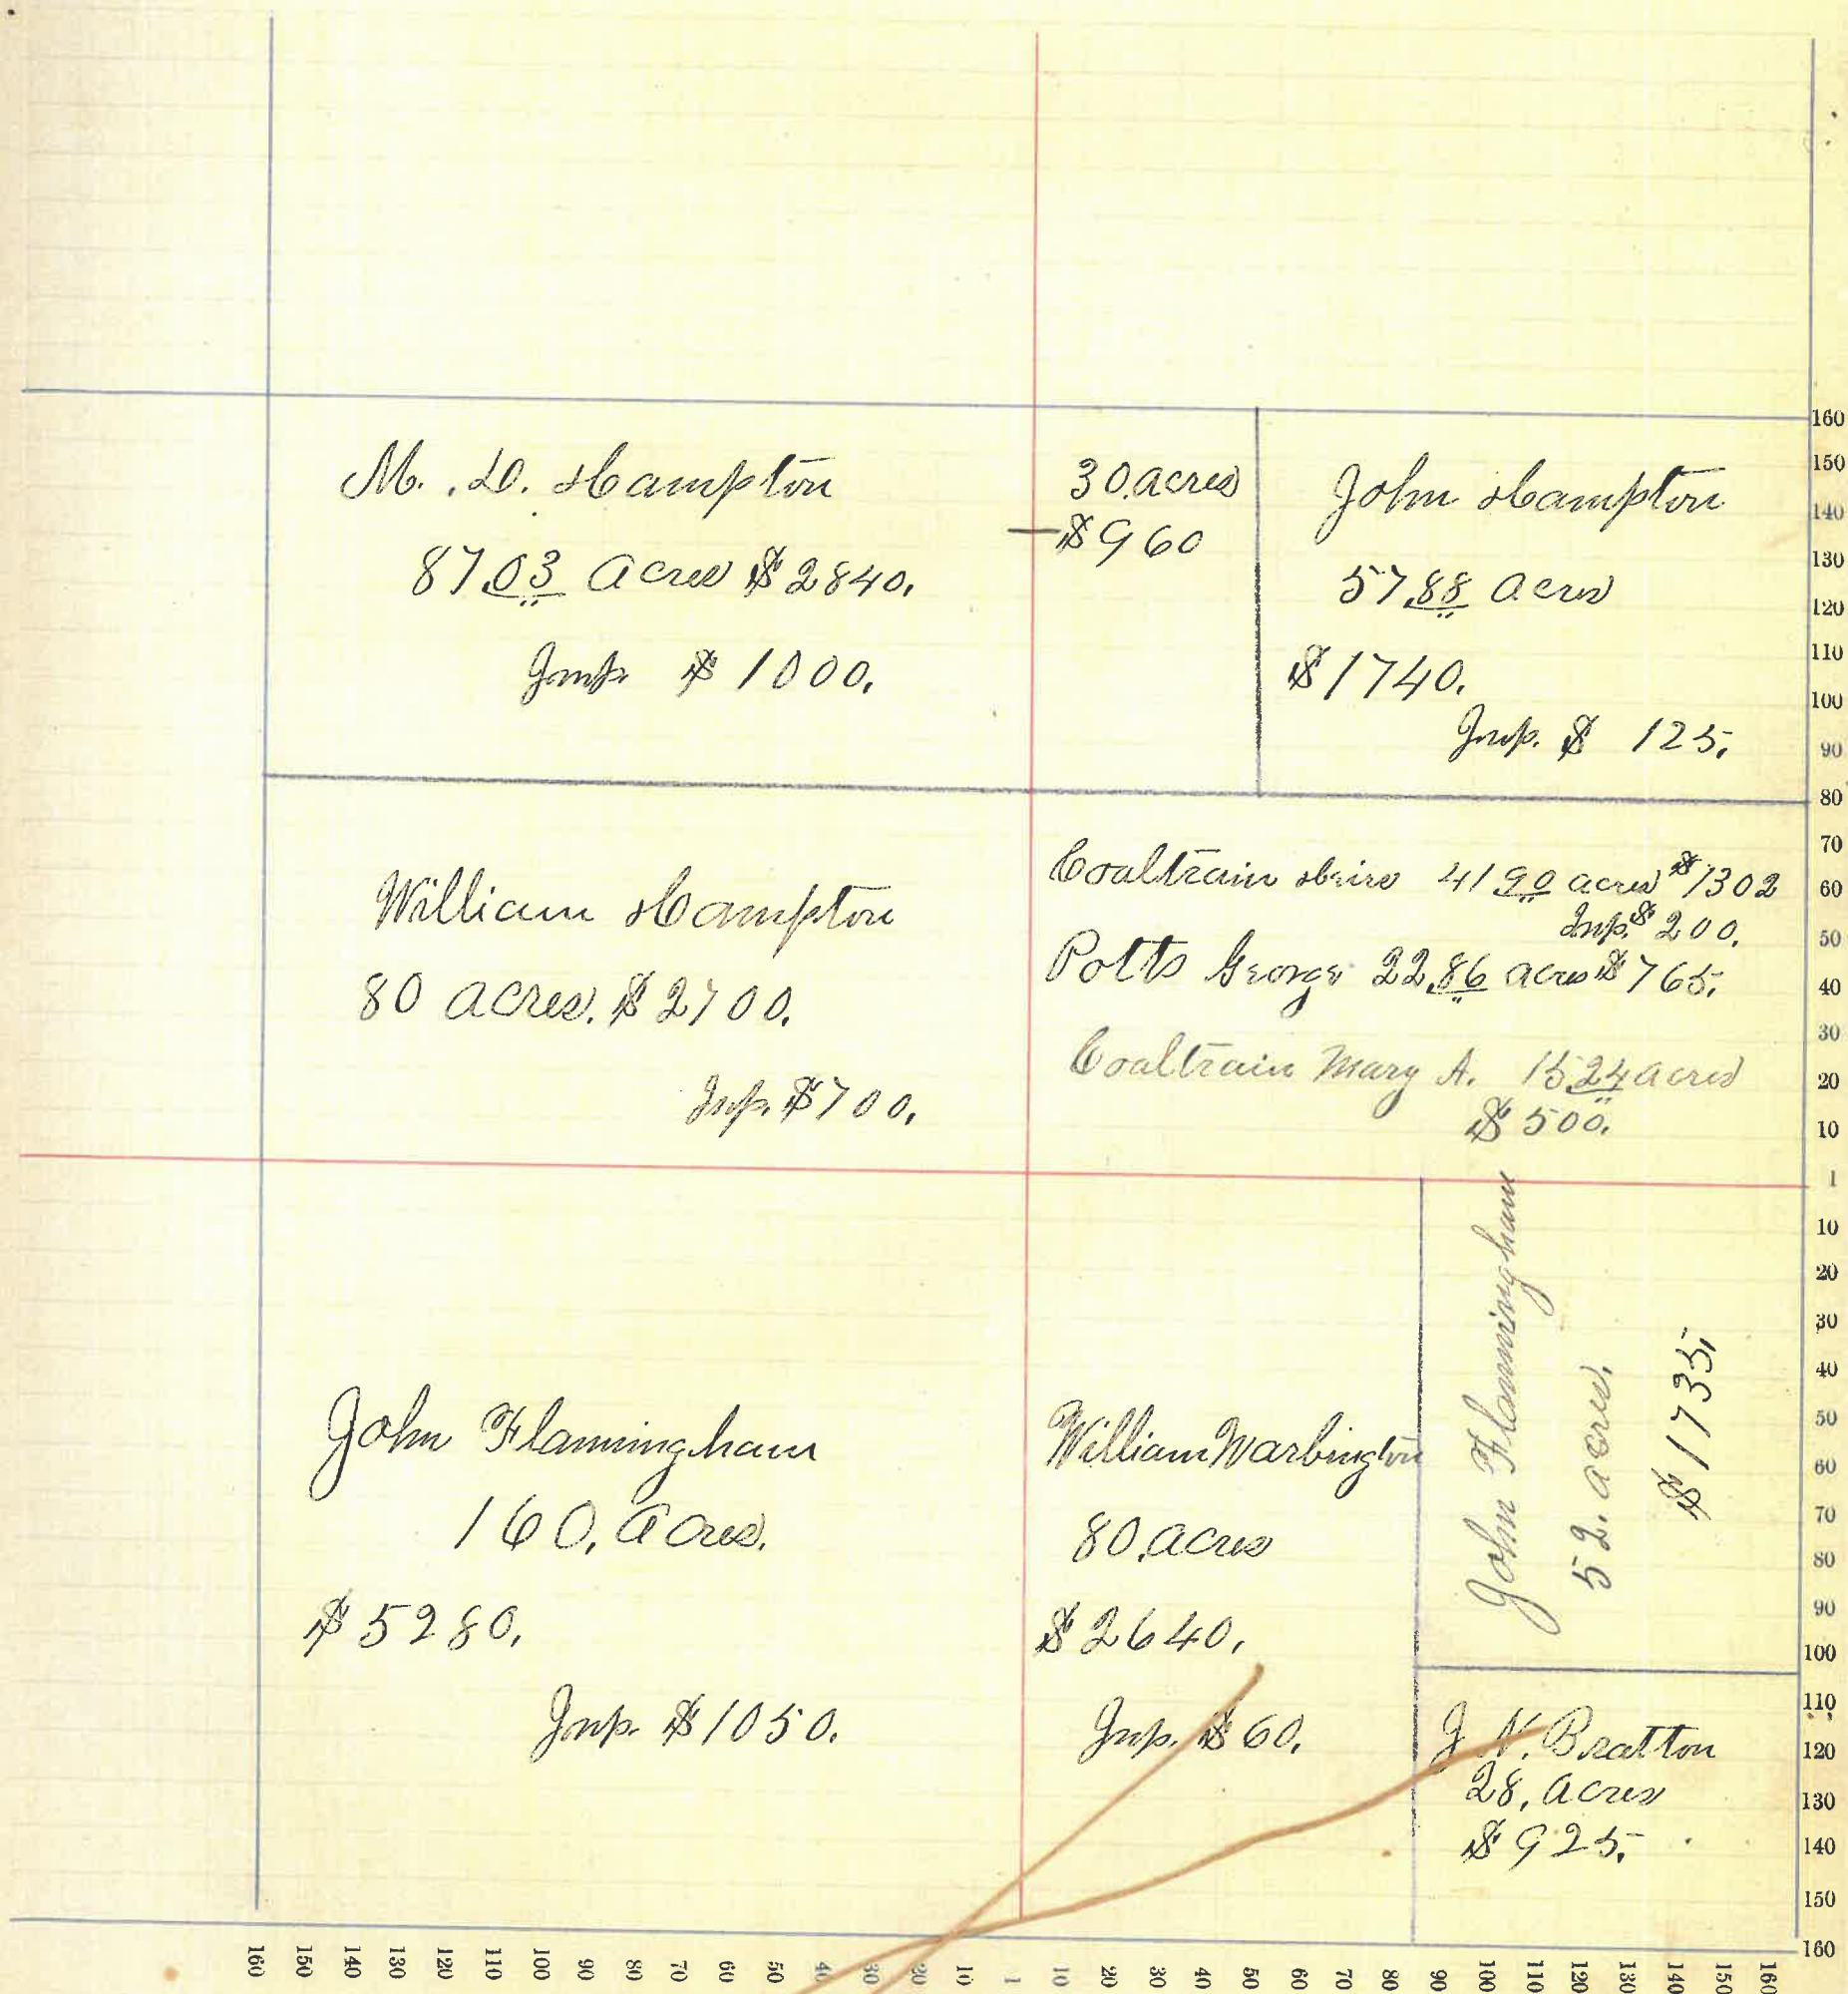 M. D. Hampton
87.03 Acres $2840.
Imp. $1000.
30. acres
$960
John Hampton
57.88 Acres
$1740.
Imp. $ 125.
William Hampton
80 acres. $2700.
Imp. $700.
Coaltrain Heirs 41.90 acres $1302
Imp. $200.
Potts George 22.86 acres $765.
Coaltrain Mary A. 15.24 acres
$500.
John Flanningham
160. Acres.
$5280.
Imp. $1050.
William Warbington
80. acres
$2640.
Imp. $60.
John Flanningham
52. acres.
$1735.
J. N. Bratton
28. acres
$925.
160
150
140
130
120
110
100
90
80
70
60
50
40
30
20
10
1
10
20
30
40
50
60
70
80
90
100
110
120
130
140
150
160
160 150 140 130 120 110 100 90 80 70 60 50 40 30 20 10 1 10 20 30 40 50 60 70 80 90 100 110 120 130 140 150 160